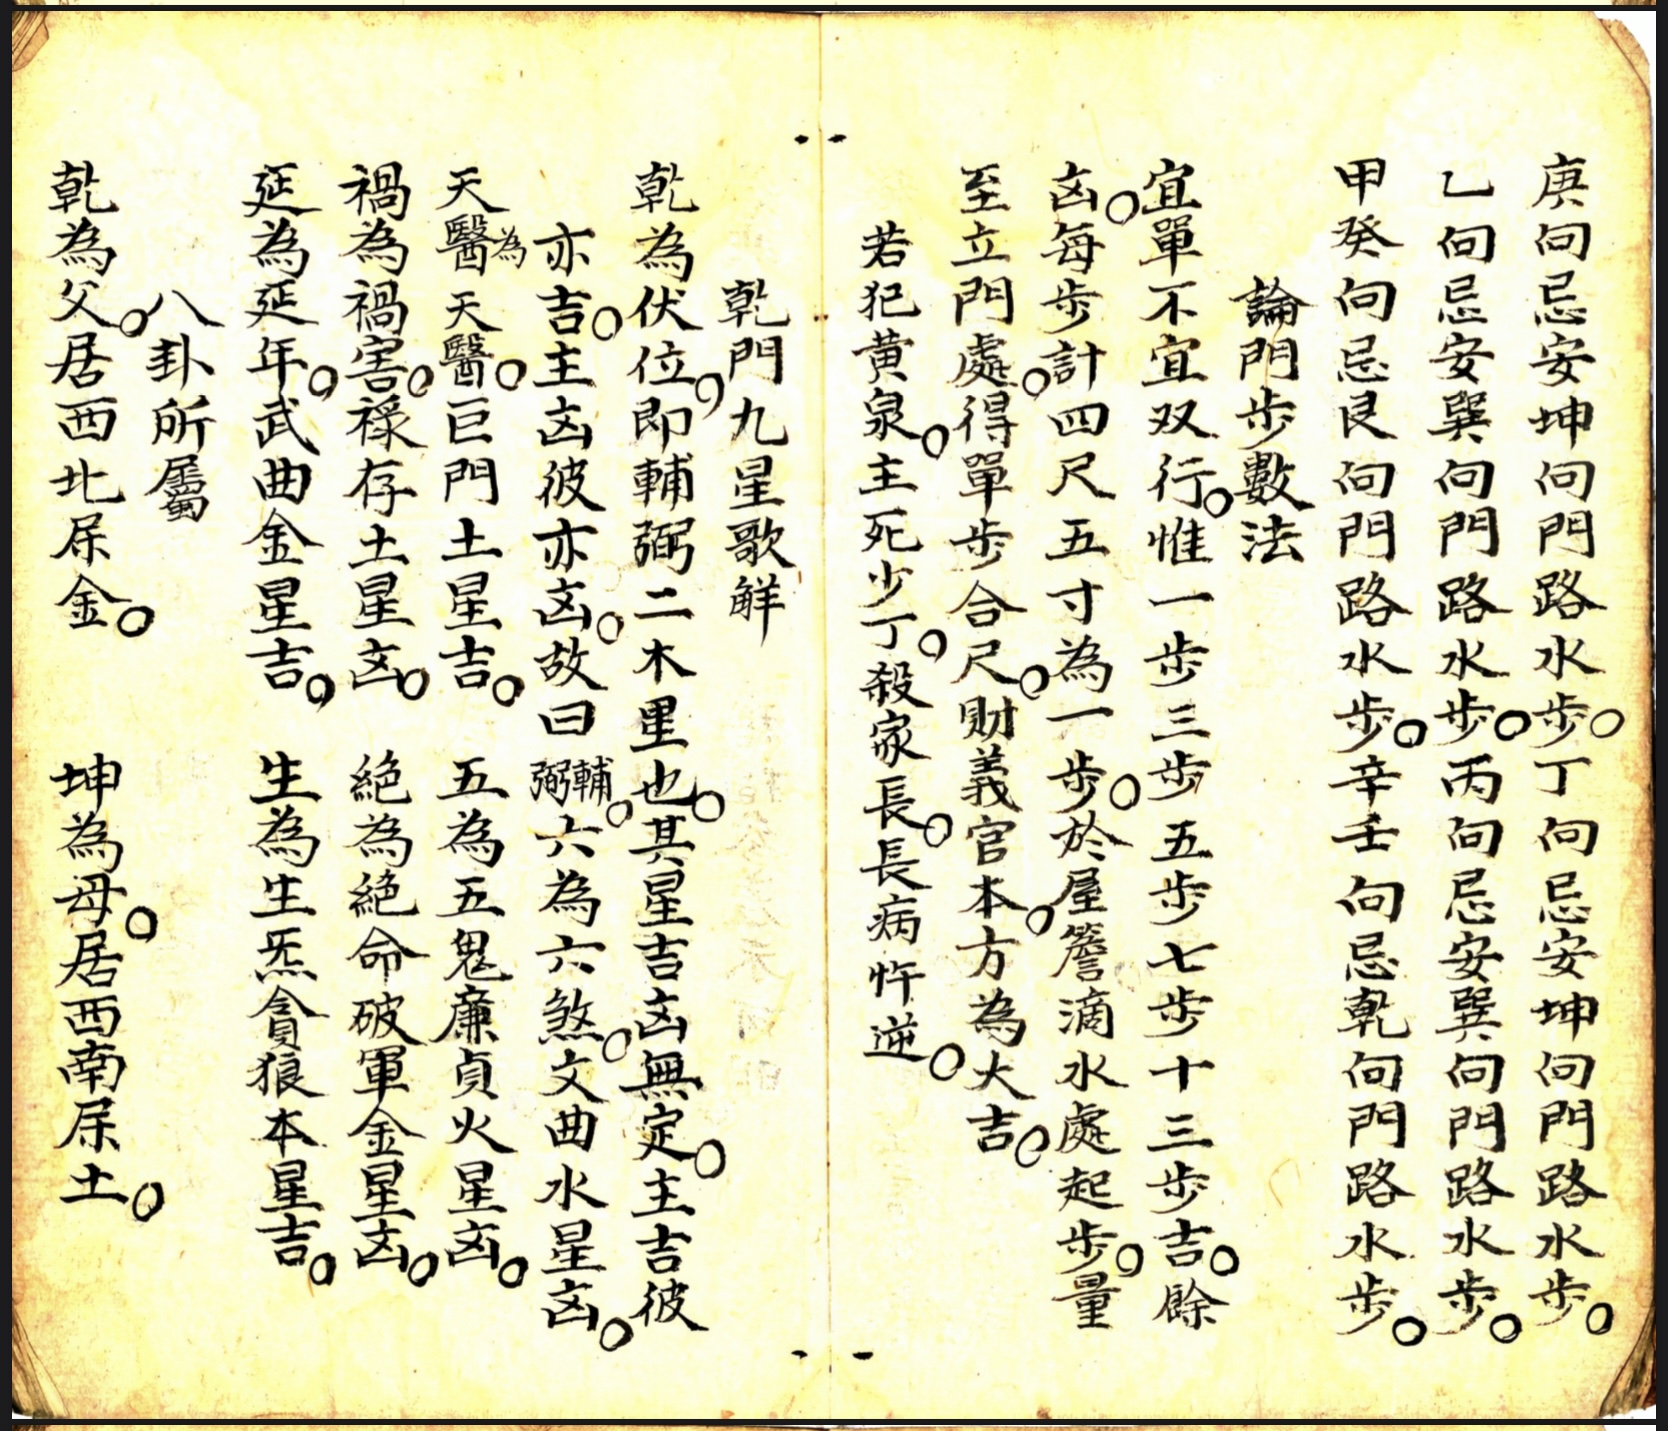 庚向忌安坤向門路水步。丁向忌安坤向門路水步。
乙向忌安巽向門路水步。丙向忌安巽向門路水步。
甲癸向忌艮向門路水步。辛壬向忌乾向門路水步。
論門步數法
宜單不宜双行。惟一步三步五步七步十三步吉。餘
凶。每步計四尺五寸為一步。於屋簷滴水處起步。量
至立門處。得單步合尺。財義官本。方為大吉。
若犯黄泉。主死少丁。殺家長。長病忤逆。
乾門九星歌解
乾為伏位。即輔弼二木星也。其星吉凶無定。主吉彼
亦吉。主凶彼亦凶。故曰輔弼。六為六煞。文曲水星凶。
天醫為天醫。巨門土星吉。五為五鬼廉貞火星凶。
禍為禍害。祿存土星凶。絕為絕命破軍金星凶。
延為延年。武曲金星吉。生為生炁貪狼木星吉。
八卦所屬
乾為父。居西北屬金。坤為母。居西南屬土。